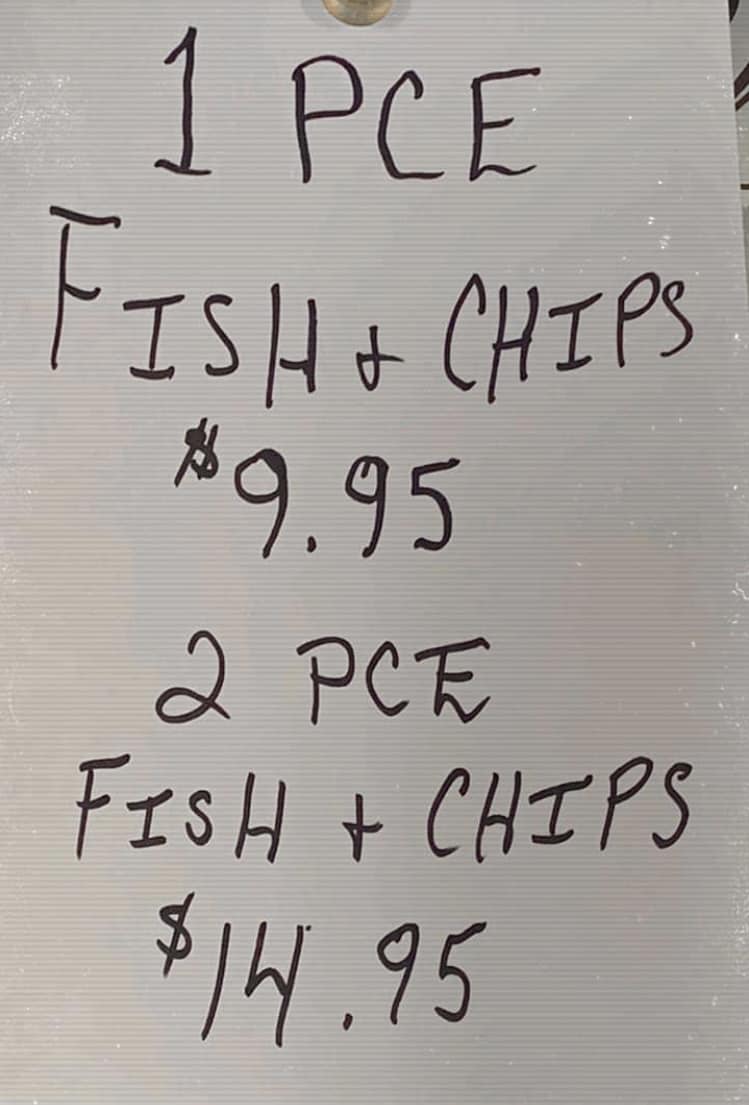 1 PCE
FISH + CHIPS
$9.95
2 PCE
FISH + CHIPS
$14.95